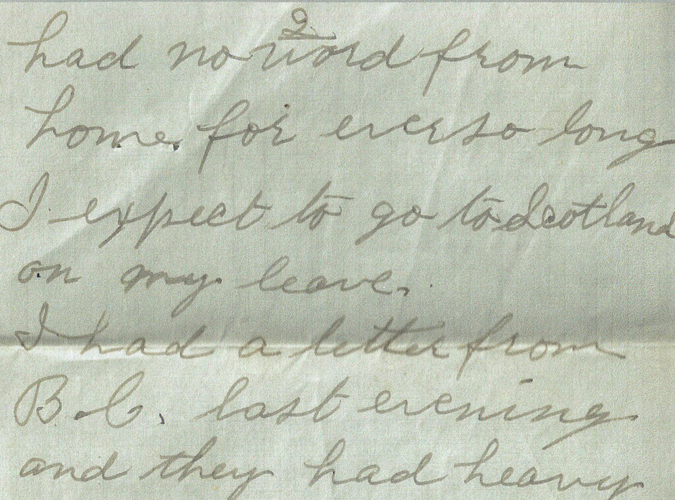 2
had no word from
home for ever so long
I expect to go to Scotland
on my leave.
I had a letter from
B.C. last evening
and they had heavy